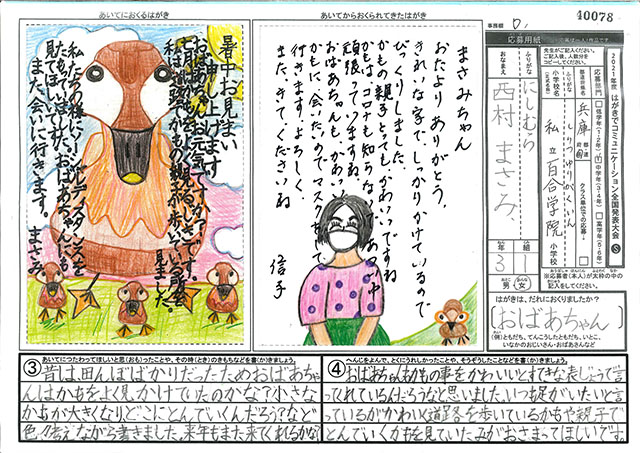 あいてにおくるはがき
あいてからおくられてきたはがき
40078
応募用紙
2021年度 はがきでコミュニケーション全国発表大会
暑中お見まい
申し上げます
おばあちゃんお元気ですか?
七月はかもをよく見るきせつです。
私は道路でかもの親子が歩いている所を
見ました。
私たちの様にソーシャルディスタンスを
たもっていました。おばあちゃんにも
見てほしいです。
また、会いに行きます。
まさみ
まさみちゃん
おたよりありがとう。
きれいな字で、しっかりかけているので
びっくりしました。
かもの親子とてもかわいいですね
かもはコロナも知らない
頑張っていますね。
おばあちゃんも、かわいい
かもに会いたいのでマスクをして
行きます。よろしく。
また、きてくださいね
信子
ふりがな
にしむら
おなまえ
西村 まさみ
兵庫
しりつゆりがくいん
私立百合学院
小学校
3年
組
男・女
はがきは、だれにおくりましたか?
(おばあちゃん)
(例)ともだち、てんこうしたともだち、いとこ、
いなかのおじいさん・おばあさんなど
③あいてにつたわってほしいと思(おも)ったことや、その時(とき)のきもちなどを書(か)きましょう。
昔は、田んぼばかりだったためおばあちゃ
んはかもをよく見かけていたのかな?小さな
かもが大きくなり、どこにとんでいくんだろう?など
色々考えながら書きました。来年もまた来てくれるかな?
④へんじをよんで、とくにうれしかったことや、そうぞうしたことなどを書(か)きましょう。
おばあちゃんもかもの事をかわいいとすてきな表じょうで言
ってれているんだろうなと思いました。いつも足がいたいと言
っているがかわいく道路を歩いているかもや親子で
とんでいくかもを見ていたみがおさまってほしいです。